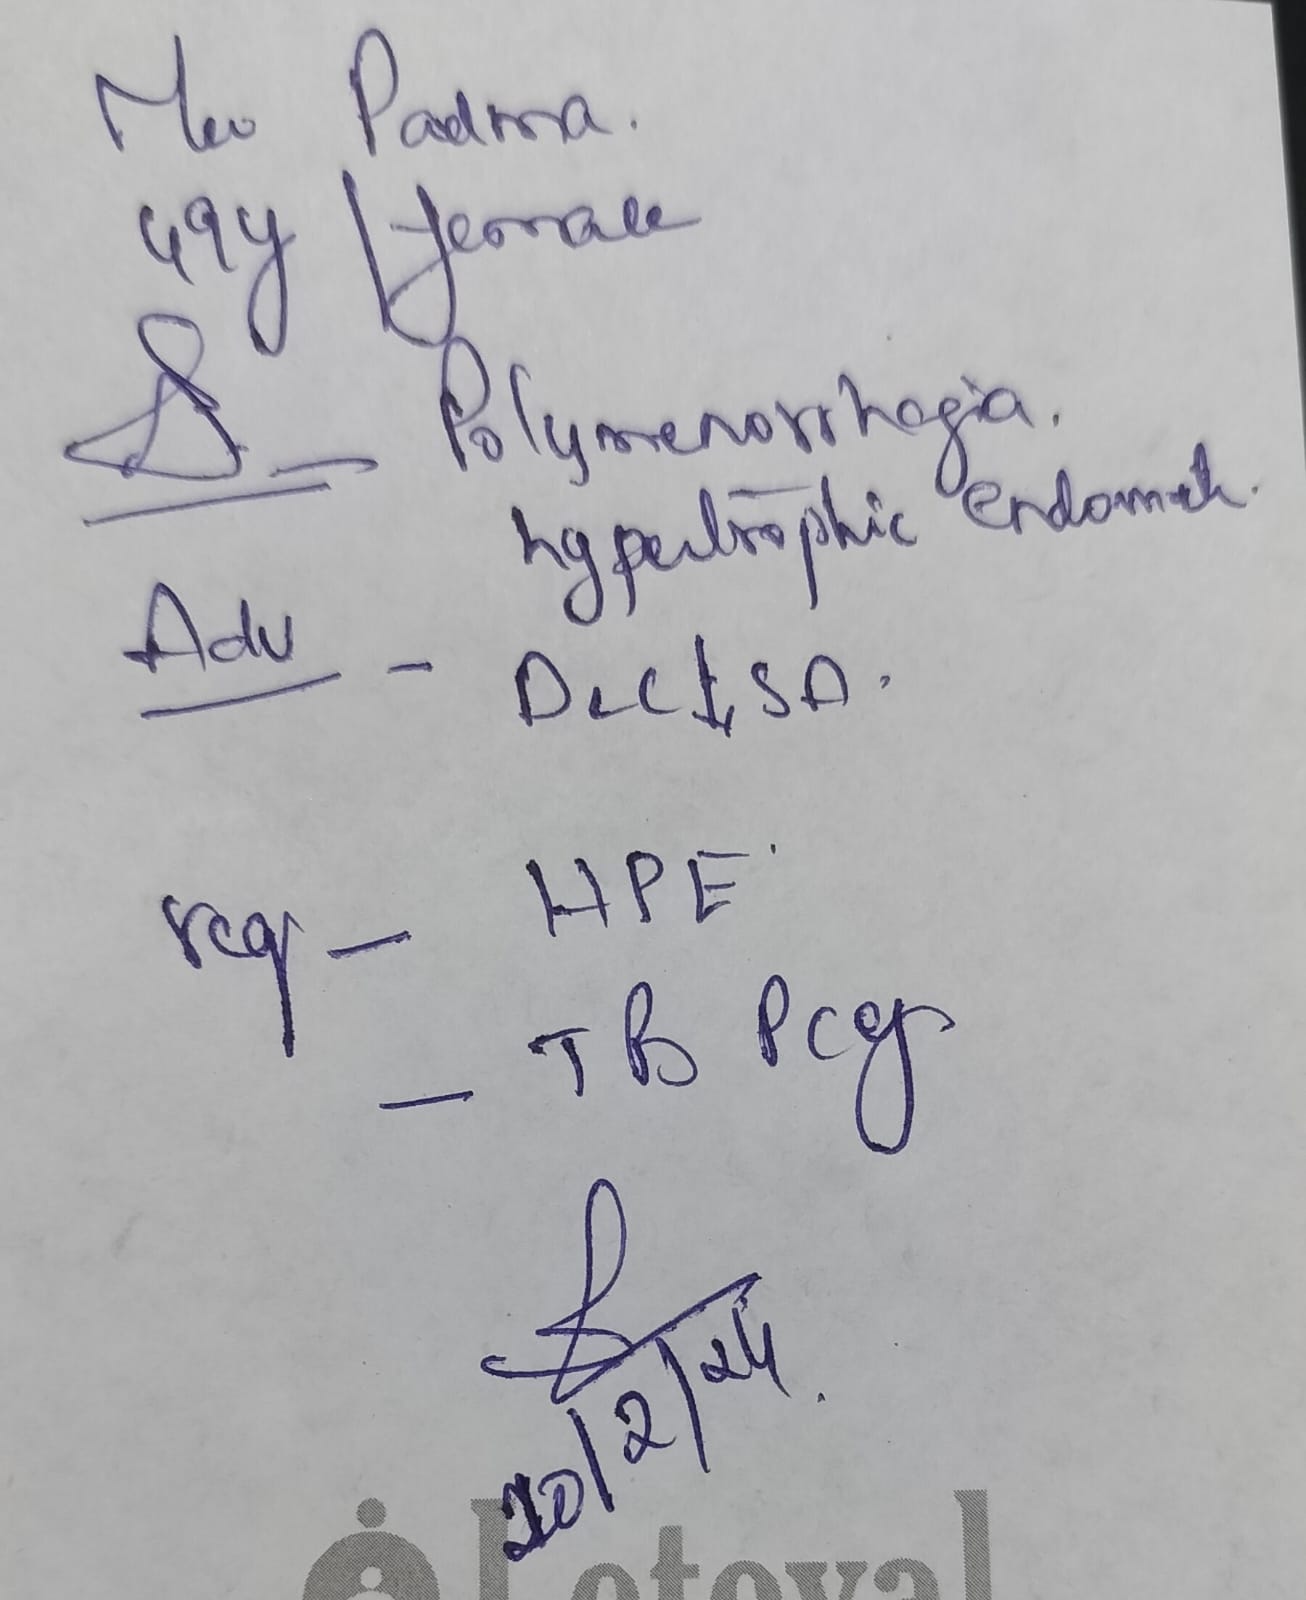 Mrs Padma.
49y / female
Δ - Polymenorrhagia.
hypertrophic endomet.
Adv - D&C ↓ SA.
req - HPE
- TB PCR
20/2/24.
Letoval